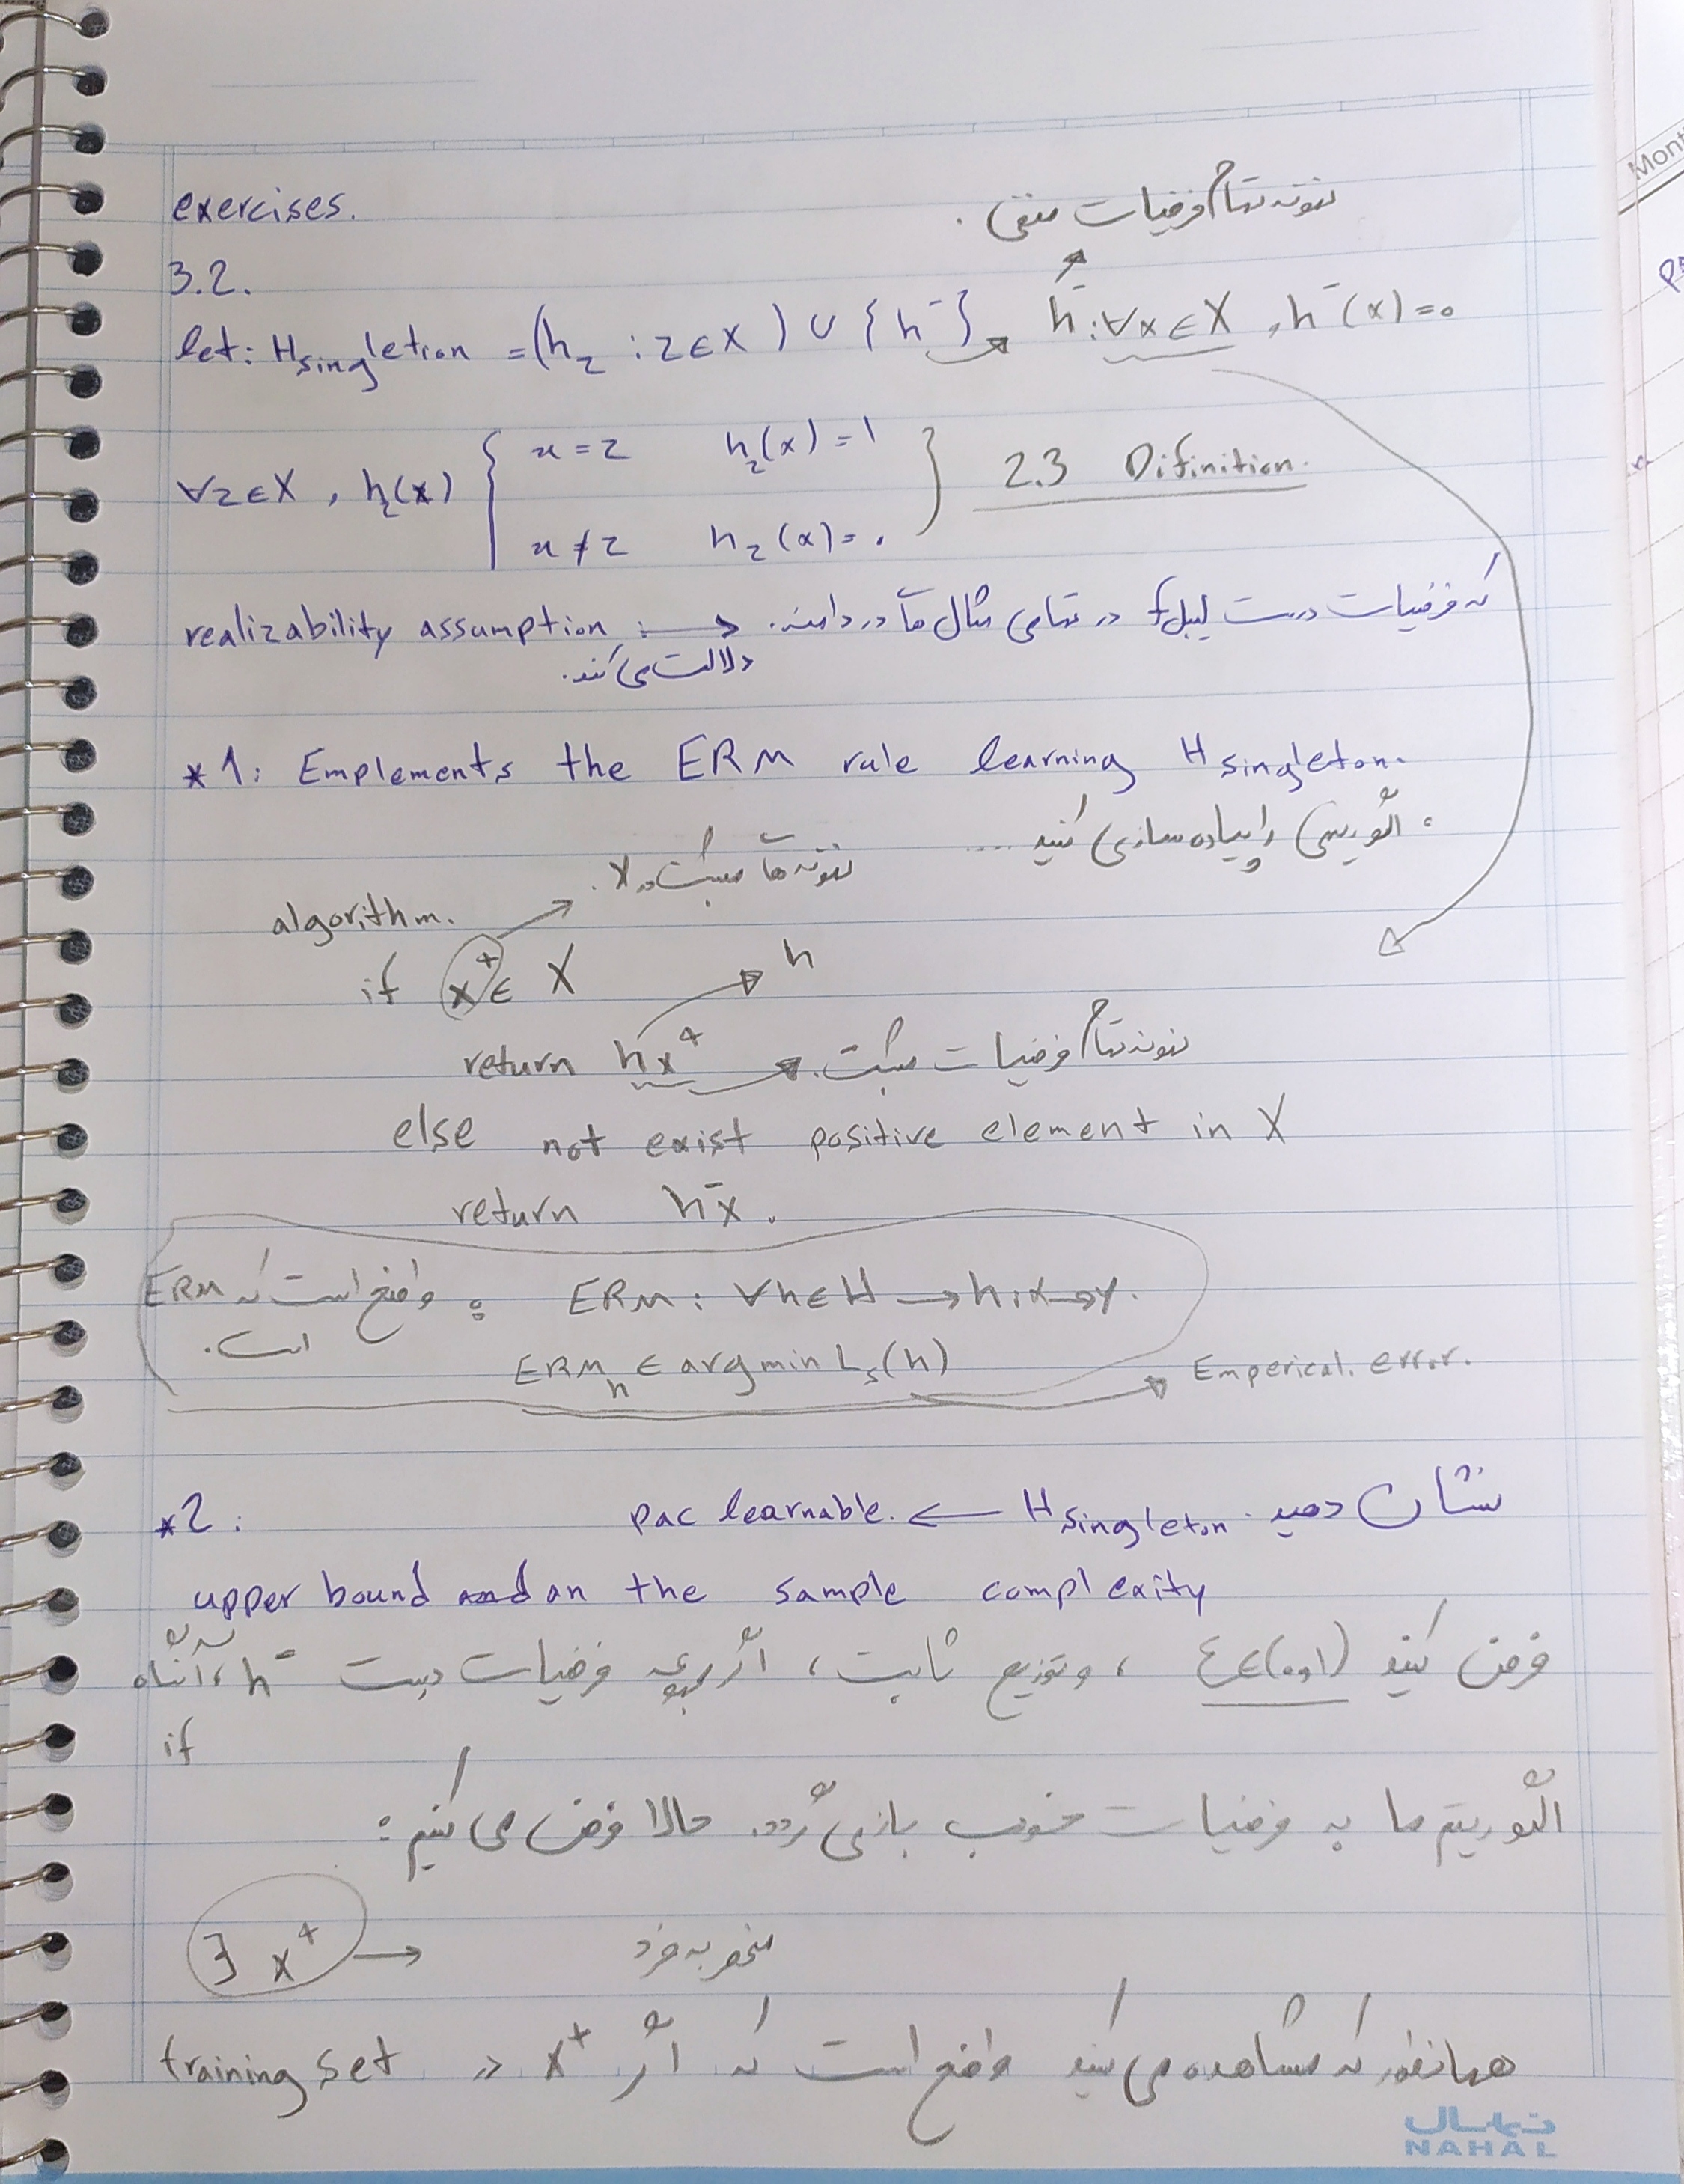 exercises.
نمونه تمام فرضیات منفی .
3.2.
let: H singletion = (h_z : z ∈ X) ∪ {h⁻} → h⁻: ∀x ∈ X , h⁻(x) = 0
∀z ∈ X , h_z(x) { x = z h_z(x) = 1
x ≠ z h_z(x) = 0 } 2.3 Difinition.
realizability assumption : → که فرضیات درست لیبل f در تمامی مثال ها در دامنه.
دلالت می‌کند.
*1: Emplements the ERM rule learning H singleton.
: الگوریتمی را پیاده سازی کنید ....
نمونه ها مثبت در X.
algorithm.
if x⁺ ∈ X
h
return hx⁺ → نمونه تمام فرضیات مثبت.
else not exist positive element in X
return h⁻x.
ERM : ∀h∈H → h: X → Y. : واضح است که ERM
است.
ERM_h ∈ argmin L_s(h) → Emperical. error.
*2: نشان دهید H singleton. ← pac learnable.
upper bound and on the sample complexity
فرض کنید ε ∈ (0,1) ، و توزیع ثابت ، اگر فرضیات درست h⁻ ، آنگاه
if
الگوریتم ما به فرضیات خوب بازمی گردد. حالا فرض می کنیم :
∃ x⁺ → منحصر به فرد
همانطور که مشاهده می کنید واضح است که اگر x⁺ در training set
نهال
NAHAL
Mont